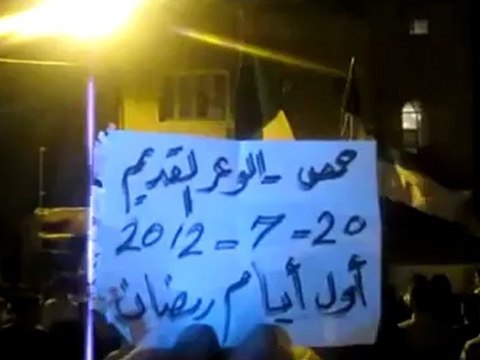 حمص - الوعر القديم
20 = 7 = 2012
أول أيام رمضان